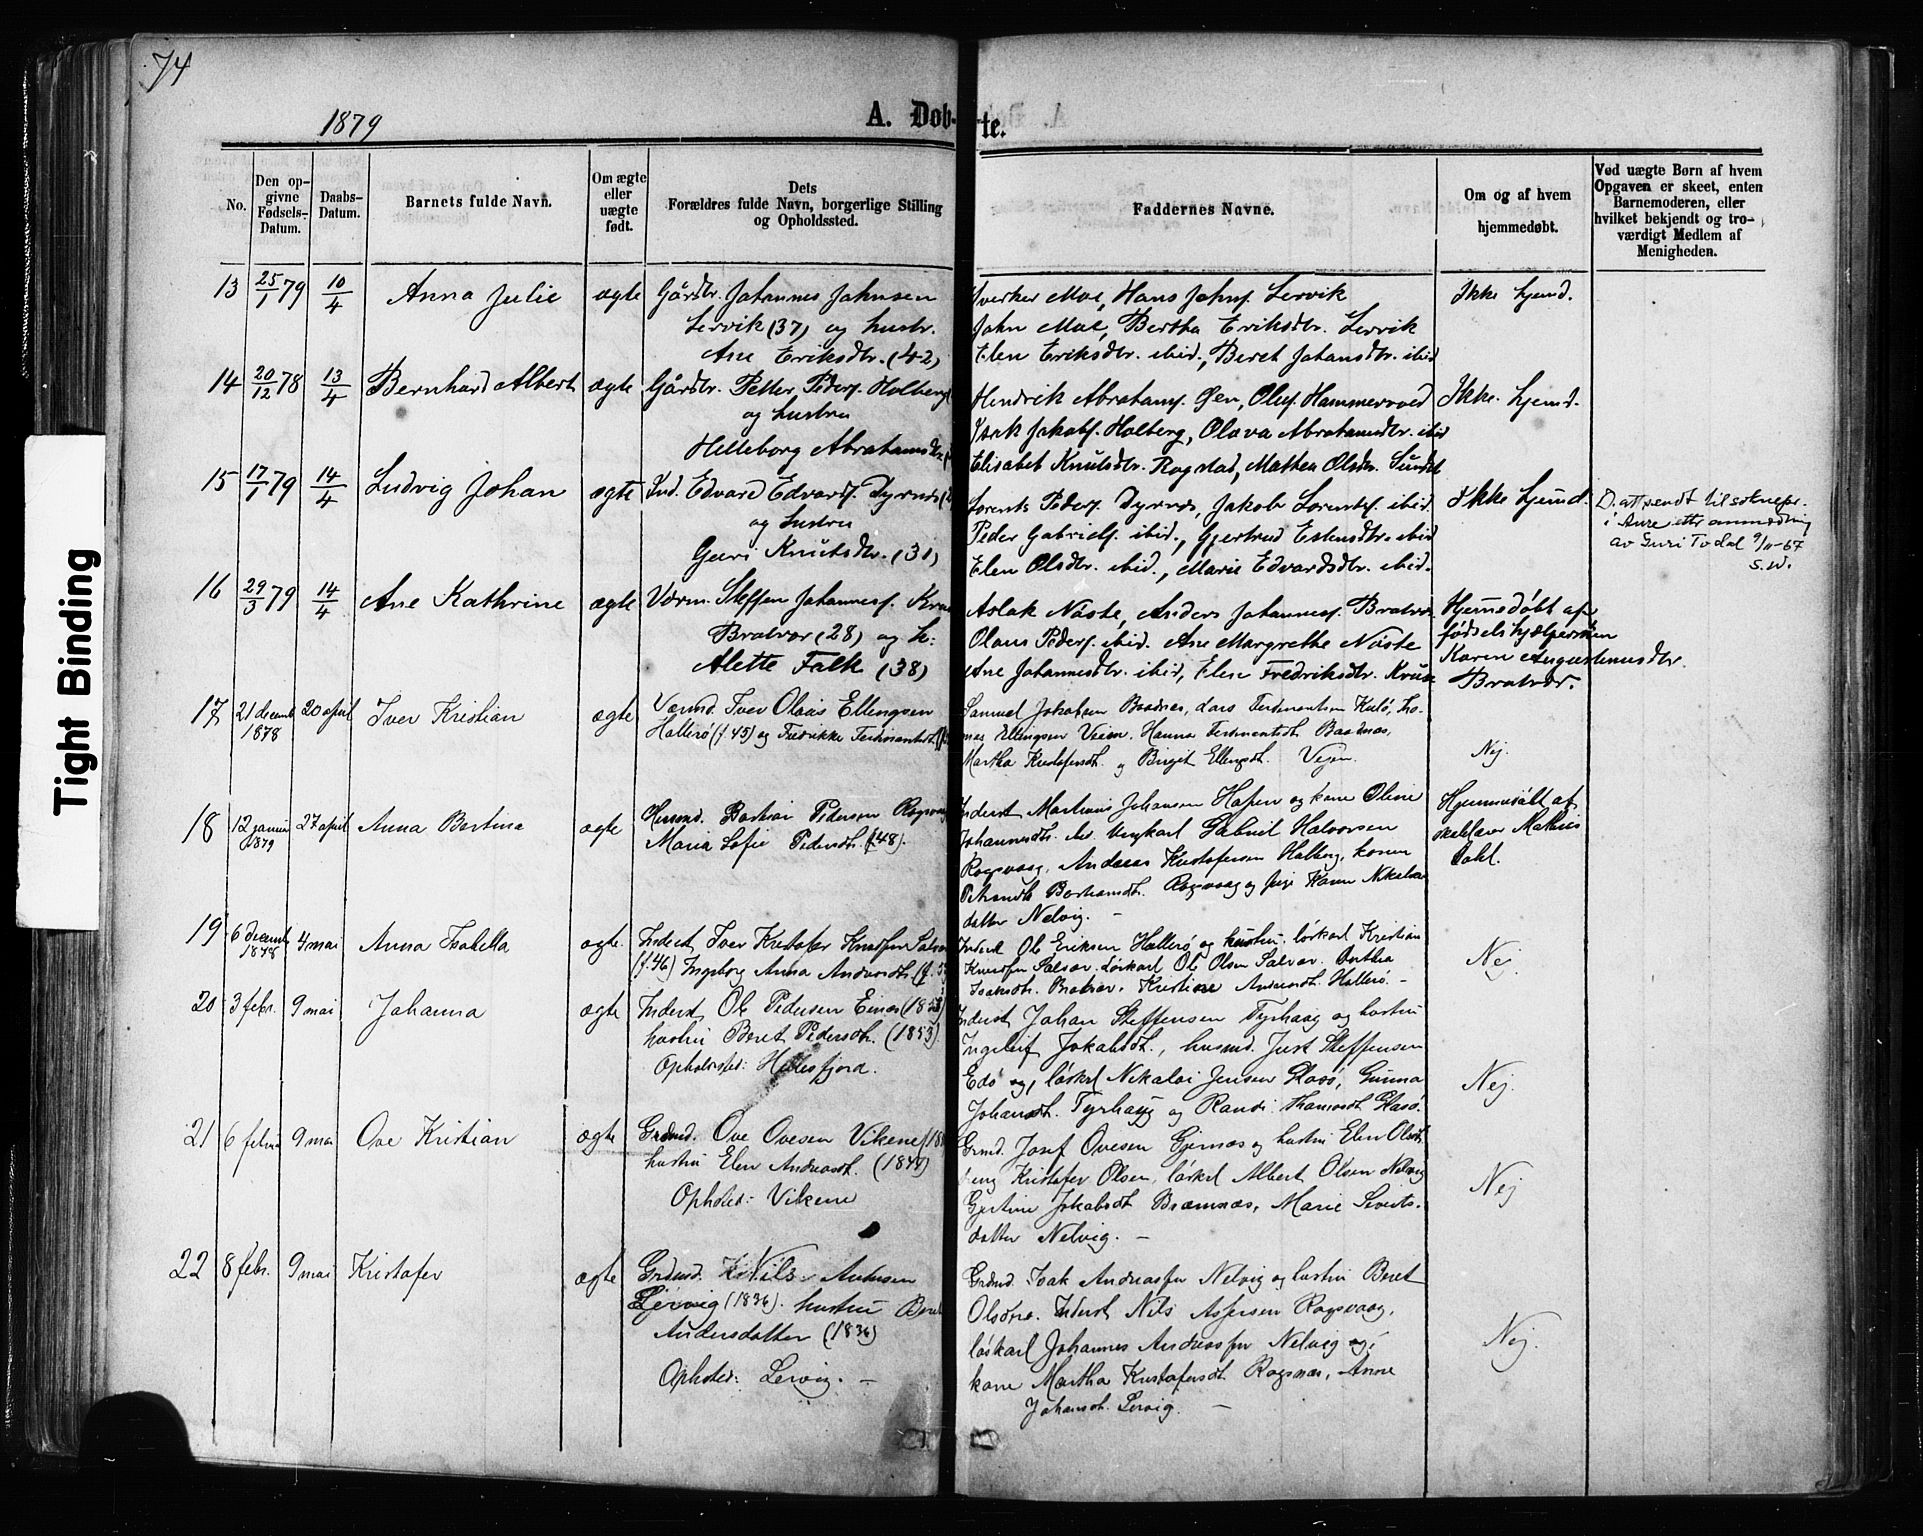 74
1879
A. Døb-te.
No.
Den op-
givne
Fødsels-
Datum.
Daabs-
Datum.
Barnets fulde Navn.
Om ægte
eller
uægte
født.
Dets
Forældres fulde Navn, borgerlige Stilling
og Opholdssted.
Faddernes Navne.
Om og af hvem
hjemmedøbt.
Ved uægte Børn af hvem
Opgaven er skeet, enten
Barnemoderen, eller
hvilket bekjendt og tro-
værdigt Medlem af
Menigheden.
13 25/1 79 10/4 Anna Julie ægte Gårdbr. Johannes Johnsen
Lervik (37) og hustr.
Ane Eriksdtr. (42)
Sverker Moe, Hans Johns. Lervik
John Moe, Bertha Eriksdtr. Lervik
Elen Eriksdtr. ibid., Beret Johansdtr. ibid
Ikke hjemd.
14 20/12 78 13/4 Bernhard Albert ægte Gårdbr. Petter Peders. Holberg
og hustru
Helleborg Abrahamsdtr.
Hendrik Abrahams. Gen, Olus. Hammervold
Isak Jakobs. Holberg, Olava Abrahamsdtr. ibid
Elisabet Knutsdtr. Rogstad, Mathea Olsdtr. Sundet
Ikke hjemd.
15 17/1 79 14/4 Ludvig Johan ægte Ind. Edvard Edvards. Dyrnes
og hustru
Guri Knutsdtr. (31)
Lorents Peders. Dyrnes, Jakob Lorents. ibid.
Peder Gabriels. ibid., Gjertrud Estensdtr. ibid
Elen Olsdtr. ibid., Marie Edvardsdtr. ibid.
Ikke hjemd.
D. att. sendt til soknepr. 
i Aure etter anmodning
av Guri Todal 9/11-67
S.W.
16 29/3 79 14/4 Ane Kathrine ægte Værm. Steffen Johannes.
Bratvær (28) og h:
Alette Falk (38)
Aslak Nåste, Anders Johannes. Bratvær
Olaus Peders. ibid. Ane Margrethe Nåste
Ane Johannesdtr. ibid, Elen Fredriksdtr.
Hjemedøbt af
fødselshjælpersken
Karen Augustinusdtr.
Bratvær.
17 21 decemb 1878 20 april Iver Kristian ægte Værmd. Iver Olaus Ellengsen
Hallerø (f. 45) og Fredrikke Ferdinantsdt.
Samuel Jakobsen Baadnes, Lars Ferdinantsen Kulø, Tho-
mas Ellingsen Veien. Hanna Ferdinantsdt. Baadnæs,
Martha Kristofersdt. og Birgit Ellengsdt. Vejen.
Nej.
18 12 januar 1879 27 april Anna Bertina ægte Husmd. Bortian Pedersen Rogsvaag
Maria Sofie Pedersdt. (f. 48).
Inderst Martinus Johansen Hafen og kone Oline
Johannesdt. ibd. Ungkarl Gabriel Halvorsen
Rogsvaag, Andreas Kristofersen Halberg, konen
Rogsvaag og pige Karen Nikolai-
datter Nelvig. —
Hjemmedøbt af
skolelærer Mathias
Dahl.
19 6 decemb 1878 4 mai Anna Isabella ægte Inderst Iver Kristofer Knudsen
(f. 46) Ingeborg Anna Andersdt.
Inderst Ole Eriksen Hallerø og hustru. løskarl Kristian
Knudsen løskarl Ole Olsen Dorthea
Isaksdt. Bratvær. Kristine Andersdt. Hallerø. —
Nej.
20 3 febr. 9 mai Johanna ægte Inderst Ole Pedersen
hustru Beret Pedersdt. (1853).
Opholdsted: Hellesfjord.
Inderst Johan Steffensen Tyrhaug og hustru
Ingeleif Jokabsdt., husmd. Just Steffensen
Edø og løskrl Nikolai Jensen Glasø, Gunna
Johansdt. Tyrhaug og Randi Thomasdt. Glasø.
Nej.
21 6 februa 9 mai Ove Kristian ægte Grdmd. Ove Ovesen Vikene
hustru Elen Andreasdt. (1848)
Opholsted: Vikene
Grmd. Josef Ovesen Gjernæs og hustru Elen Olsdt.
ung Kristofer Olsen, løskrl Albert Olsen Nelvig
Gjertine Jokabsdt Bræmnæs, Marie Siverts-
datter Nelvig. —
Nej
22 8 febr. 9 mai Kristofer ægte Grdmd. Nils Andersen
Lervig (1836). hustru Beret
Andersdatter (1836)
Opholsted: Lervig. —
Grdmd. Isak Andreassen Nelvig og hustru Beret
Olsdtr. Inderst Nils Aspersen Rogsvaag,
løskarl Johannes Andreassen Nelvig og
kone Martha Kristofersdt. Rogsnæs, Anne
Johansdt. Lervig. —
Nej.
Tight Binding